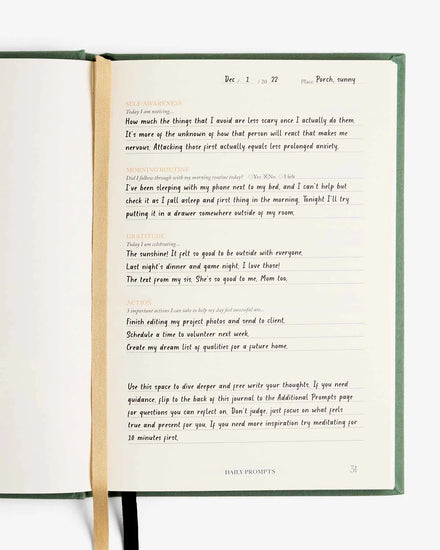 Dec / 1 / 20 22 Place: Porch, sunny
SELF-AWARENESS
Today I am noticing...
How much the things that I avoid are less scary once I actually do them.
It's more of the unknown of how that person will react that makes me
nervous. Attacking those first actually equals less prolonged anxiety.
MORNING ROUTINE
Did I follow through with my morning routine today? Yes No 1 left
I've been sleeping with my phone next to my bed, and I can't help but
check it as I fall asleep and first thing in the morning. Tonight I'll try
putting it in a drawer somewhere outside of my room.
GRATITUDE
Today I am celebrating...
The sunshine! It felt so good to be outside with everyone.
Last night's dinner and game night, I love those!
The text from my sis. She's so good to me. Mom too.
ACTION
3 important actions I can take to help my day feel successful are...
Finish editing my project photos and send to client.
Schedule a time to volunteer next week.
Create my dream list of qualities for a future home.
Use this space to dive deeper and free write your thoughts. If you need
guidance, flip to the back of this journal to the Additional Prompts page
for questions you can reflect on. Don't judge, just focus on what feels
true and present for you. If you need more inspiration try meditating for
10 minutes first.
DAILY PROMPTS 51